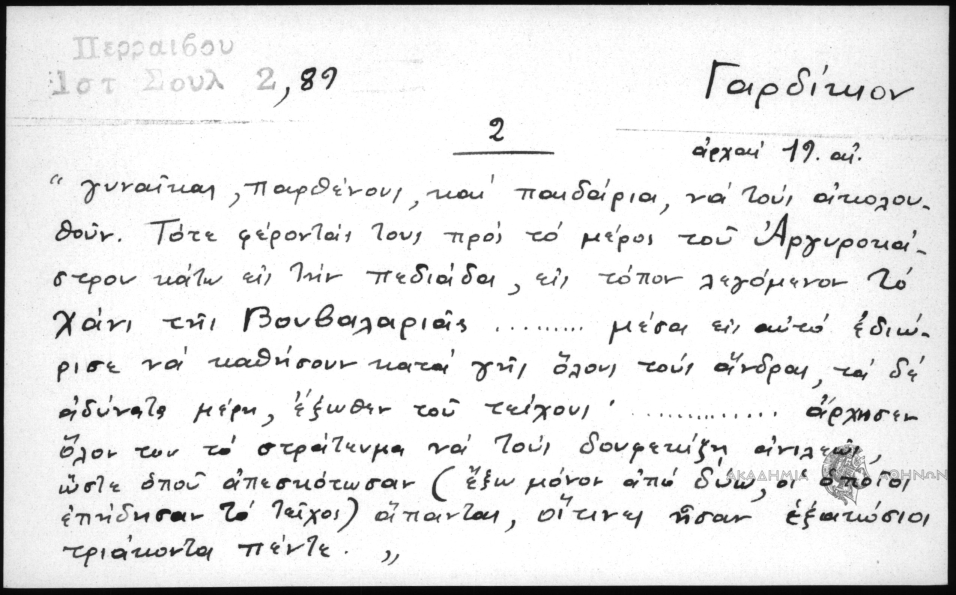 Περραιβου
Ιστ Σουλ 2, 89
Γαρδίκιον
2
ἀρχαί 19. αἰ.
"γυναῖκας, παρθένους, καί παιδάρια, νά τούς ἀκολου-
θοῦν. Τότε φέροντάς τους πρός τό μέρος τοῦ Ἀργυροκά-
στρου κάτω εἰς τήν πεδιάδα, εἰς τόπον λεγόμενον τό
Χάνι τῆς Βουβαλαριᾶς ......... μέσα εἰς αὐτό ἐδιώ-
ρισε νά καθήσουν κατά γῆς ὅλους τούς ἄνδρας, τά δέ
ἀδύνατα μέρη, ἐξωθεν τοῦ τείχους· ............. ἄρχησεν
ὅλον του τό στράτευμα νά τούς δουφεκίζῃ ἀνιλεῶς,
ὥστε ὁποῦ ἀπεσκότωσαν (ἔξω μόνον ἀπό δύω, οἱ ὁποῖοι
ἐπήδησαν τό τεῖχος) ἅπαντας, οἵτινες ἦσαν ἑξακόσιοι
τριάκοντα πέντε. "
ΑΚΑΔΗΜΙΑ ΑΘΗΝΩΝ